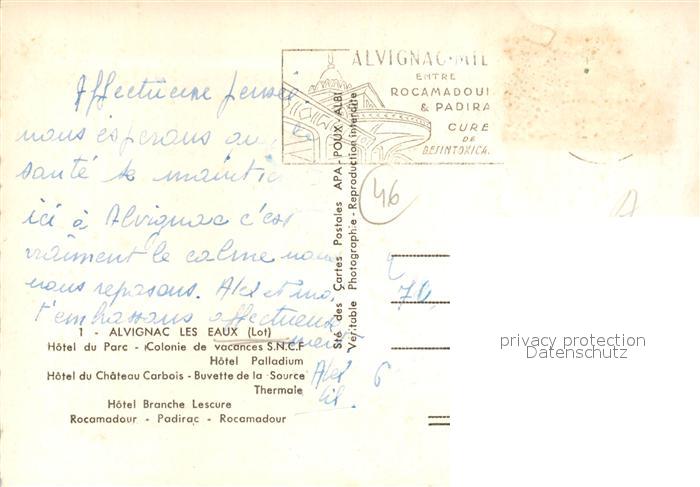 Affectueuse pensée
nous espérons que
santé se maintie
ici à Alvignac c'est
vraiment le calme nous
nous reposons. Alex et moi
t'embrassons affectueuse
ment
Alex
1 - ALVIGNAC LES EAUX (Lot)
Hôtel du Parc - Colonie de vacances S.N.C.F
Hôtel Palladium
Hôtel du Château Carbois - Buvette de la Source
Thermale
Hôtel Branche Lescure
Rocamadour - Padirac - Rocamadour
Sté des Cartes Postales APA-POUX-ALBI
Véritable Photographie - Reproduction interdite
ALVIGNAC-MIE
ENTRE
ROCAMADOUR
& PADIRA
CURE
DE
DESINTOXICA
46
70,
6
privacy protection
Datenschutz